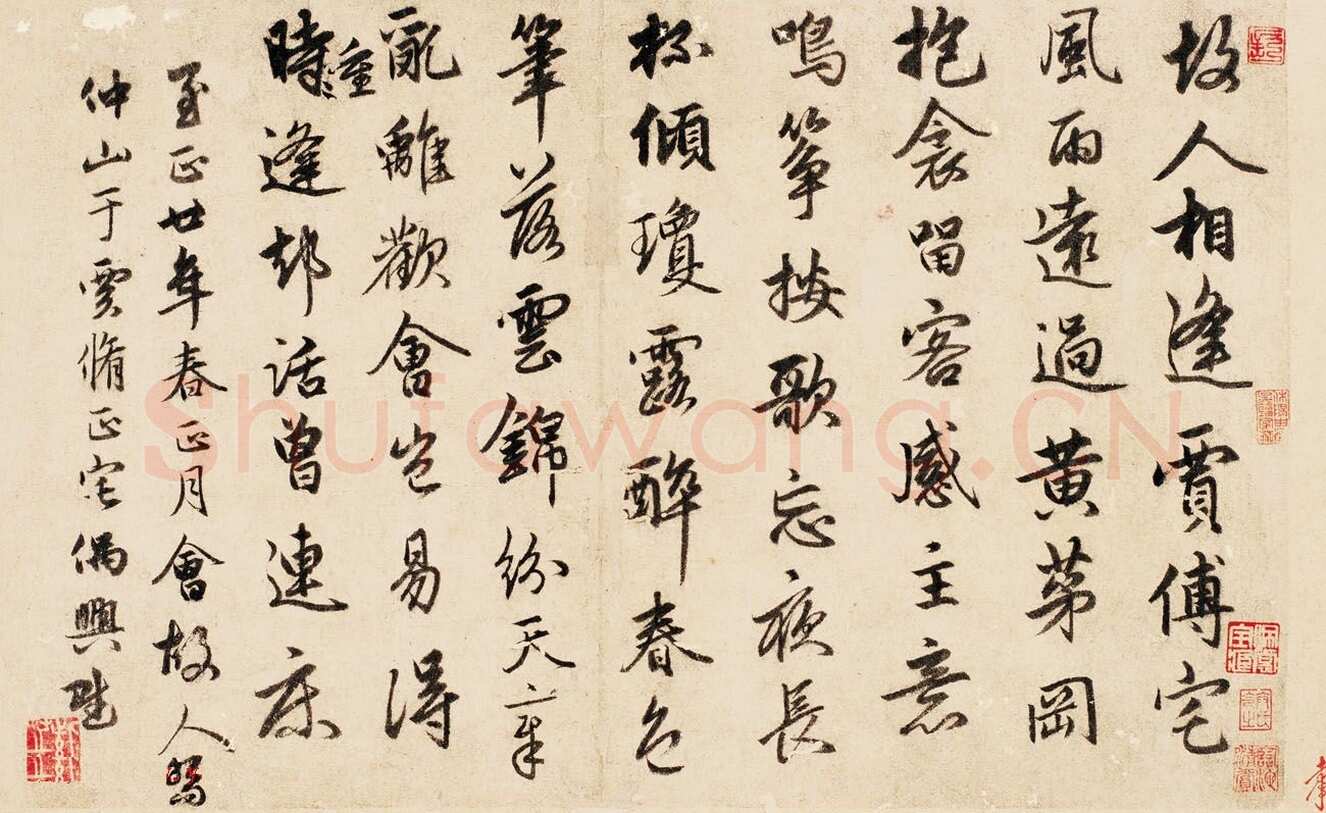 故人相逢賈傅宅
風雨遠過黃茅岡
抱衾留客感主意
鳴箏按歌忘夜長
杯傾瓊露醉春色
筆落雲錦紛天章
亂離歡會豈易得
時〻重逢却話曾連床
至正廿年春正月會故人
仲山于賈脩正宅偶興
Shufawang.CN